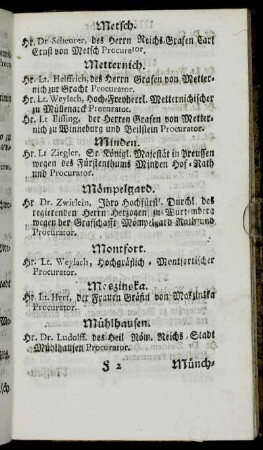 Metsch.
Hr. Dr Scheurer, des Herrn Reichs-Grafen Carl
Ernst von Metsch Procurator.
Metternich.
Hr. Lt. Helffrich, des Herrn Grafen von Metter-
nich zur Gracht Procurator.
Hr. Lt. Weylach, Hoch-Freyherrl. Metternichischer
zu Müllenack Procurator.
Hr. Lt Bissing, der Herren Grafen von Metter-
nich zu Winneburg und Beilstein Procurator.
Minden.
Hr. Lt Ziegler, Sr. Königl. Majestät in Preussen
wegen des Fürstenthums Minden Hof-Rath
und Procurator.
Mömpelgard.
Hr Dr. Zwirlein, Ihro Hochfürstl. Durchl. des
regierenden Herrn Hertzogen zu Würtemberg
wegen der Grafschafft Mömpelgard Rath und
Procurator.
Montfort.
Hr. Lt. Weylach, Hochgräflich-Montfortischer
Procurator.
Moszinska.
Hr. Lt. Hert, der Frauen Gräfin von Moszinska
Procurator.
Mühlhausen.
Hr. Dr. Ludolff, des Heil Röm. Reichs-Stadt
Mühlhausen Procurator.
F 2 Münch-